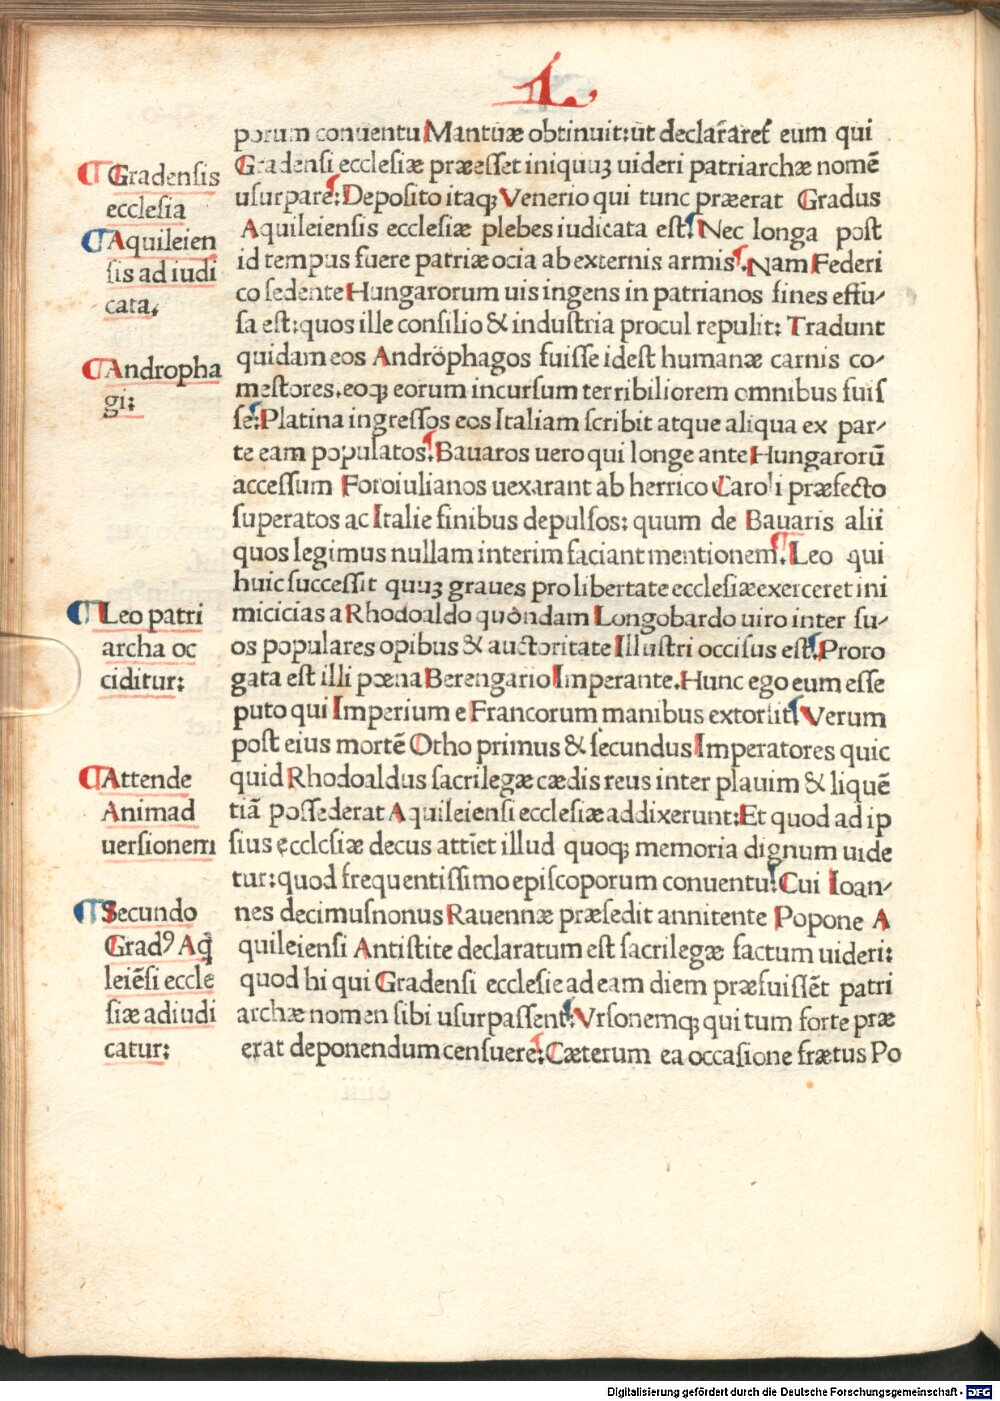 L.
porum conuentu Mantuæ obtinuit:ut declararet eum qui
Gradensi ecclesiæ præesset iniquuꝫ uideri patriarchæ nomē
usurpare: Deposito itaqꝫ Venerio qui tunc præerat Gradus
Aquileiensis ecclesiæ plebes iudicata est. Nec longa post
id tempus fuere patriæ ocia ab externis armis. Nam Federi
co sedente Hungarorum uis ingens in patrianos fines effu-
sa est:quos ille consilio & industria procul repulit: Tradunt
quidam eos Andróphagos fuisse idest humanæ carnis co-
mestores.eoqꝫ eorum incursum terribiliorem omnibus fuis
se: Platina ingressos eos Italiam scribit atque aliqua ex par-
te eam populatos. Bauaros uero qui longe ante Hungarorū
accessum Foroiulianos uexarant ab herrico Caroli præfecto
superatos ac Italie finibus depulsos: quum de Bauaris alii
quos legimus nullam interim faciant mentionem. Leo qui
huic successit quuꝫ graues pro libertate ecclesiæ exerceret ini
micicias a Rhodoaldo quondam Longobardo uiro inter su-
os populares opibus & auctoritate Illustri occisus est. Proro
gata est illi pœna Berengario Imperante. Hunc ego eum esse
puto qui Imperium e Francorum manibus extorsit. Verum
post eius mortē Otho primus & secundus Imperatores quic
quid Rhodoaldus sacrilegæ cædis reus inter plauim & liquē
tiā possederat Aquileiensi ecclesiæ addixerunt: Et quod ad ip
sius ecclesiæ decus attiēt illud quoqꝫ memoria dignum uide
tur:quod frequentissimo episcoporum conuentu. Cui Ioan-
nes decimusnonus Rauennæ præsedit annitente Popone A
quileiensi Antistite declaratum est sacrilegæ factum uideri:
quod hi qui Gradensi ecclesie ad eam diem præfuissēt patri
archæ nomen sibi usurpassent. Vrsonemqꝫ qui tum forte præ
erat deponendum censuere: Cæterum ea occasione frætus Po
Gradensis
ecclesia
Aquileien
sis ad iudi
cata.
Andropha
gi:
Leo patri
archa oc
ciditur:
Attende
Animad
uersionem
Secundo
Gradꝰ Aq̄
leiēsi eccle
siæ adiudi
catur:
Digitalisierung gefördert durch die Deutsche Forschungsgemeinschaft - DFG